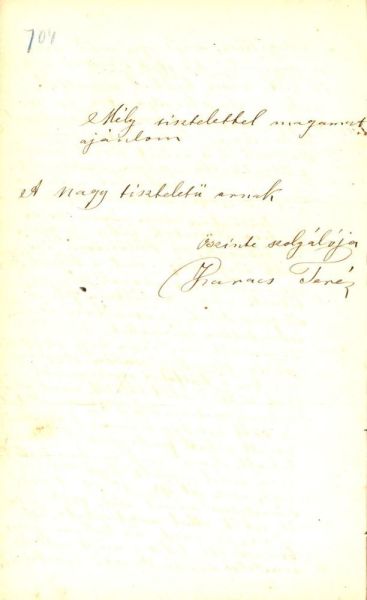 704
Mély tisztelettel magamat
ajánlom
A nagy tiszteletü urnak
öszinte szolgálója
Karacs Teréz